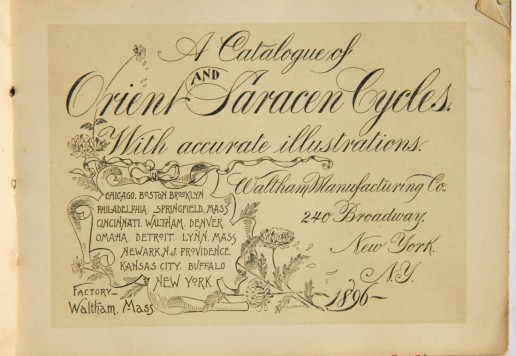 A Catalogue of
Orient AND Saracen Cycles.
With accurate illustrations.
CHICAGO. BOSTON. BROOKLYN
PHILADELPHIA. SPRINGFIELD, MASS
CINCINNATI. WALTHAM. DENVER
OMAHA. DETROIT. LYNN. MASS
NEWARK, N.J. PROVIDENCE
KANSAS CITY. BUFFALO
NEW YORK
FACTORY—
Waltham. Mass
Waltham Manufacturing Co.
240 Broadway,
New York.
N.Y.
1896—